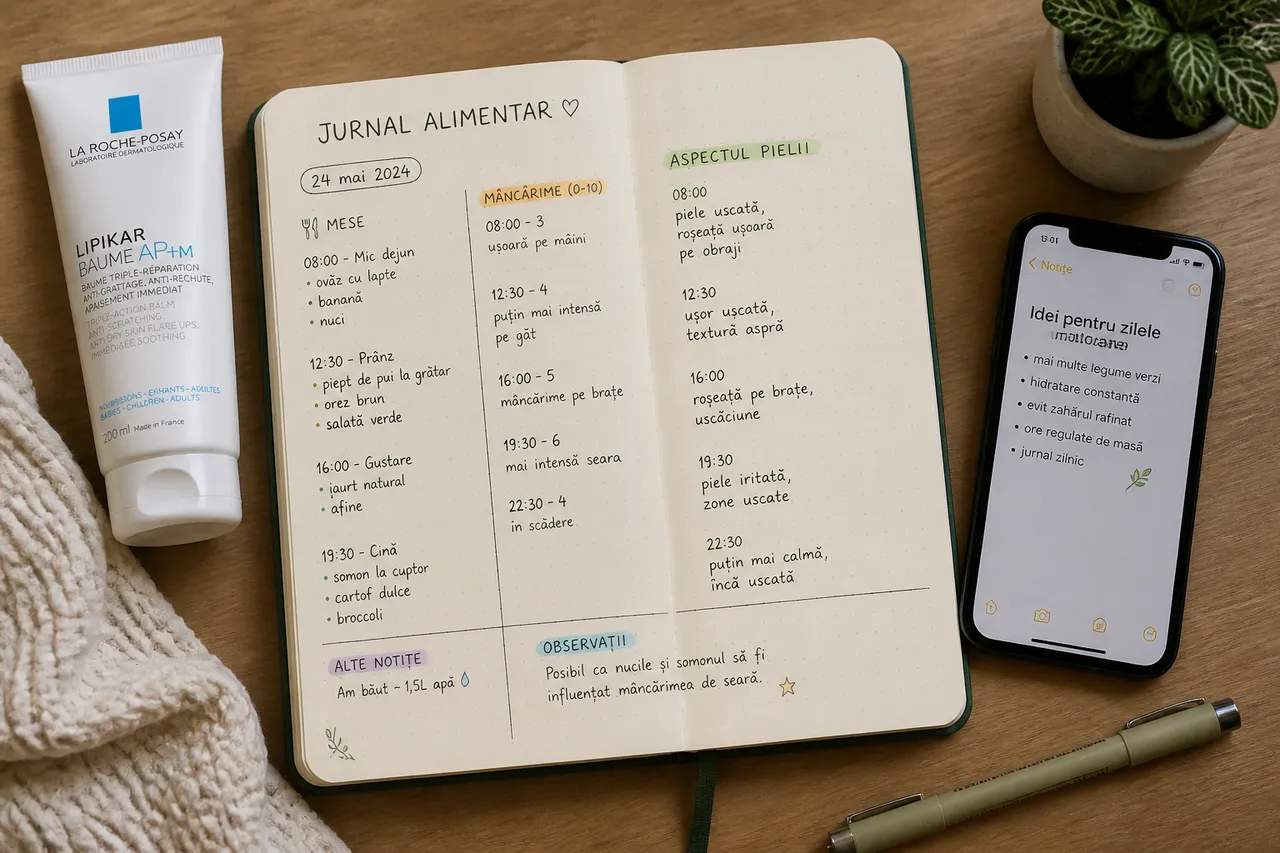 LA ROCHE-POSAY
LABORATOIRE DERMATOLOGIQUE
LIPIKAR
BAUME AP+M
BAUME TRIPLE-RÉPARATION
ANTI-GRATTAGE, ANTI-RECHUTE,
APAISEMENT IMMÉDIAT
TRIPLE-ACTION BALM
ANTI-SCRATCHING,
ANTI DRY SKIN FLARE UPS,
SOOTHING
CHILDREN - ADULTS
200 ml Made in France
JURNAL ALIMENTAR
24 mai 2024
MESE
08:00 - Mic dejun
• ovăz cu lapte
• banană
• nuci
12:30 - Prânz
• piept de pui la grătar
• orez brun
• salată verde
16:00 - Gustare
• iaurt natural
• afine
19:30 - Cină
• somon la cuptor
• cartof dulce
• broccoli
MÂNCĂRIME (0-10)
08:00 - 3
ușoară pe mâini
12:30 - 4
puțin mai intensă
pe gât
16:00 - 5
mâncărime pe brațe
19:30 - 6
mai intensă seara
22:30 - 4
în scădere
ASPECTUL PIELII
08:00
piele uscată,
roșeață ușoară
pe obraji
12:30
ușor uscată,
textură aspră
16:00
roșeață pe brațe,
uscăciune
19:30
piele iritată,
zone uscate
22:30
puțin mai calmă,
încă uscată
ALTE NOTIȚE
Am băut ~ 1,5L apă
OBSERVAȚII
Posibil ca nucile și somonul să fi
influențat mâncărimea de seară.
Notițe
Idei pentru zilele
• mai multe legume verzi
• hidratare constantă
• evit zahărul rafinat
• ore regulate de masă
• jurnal zilnic